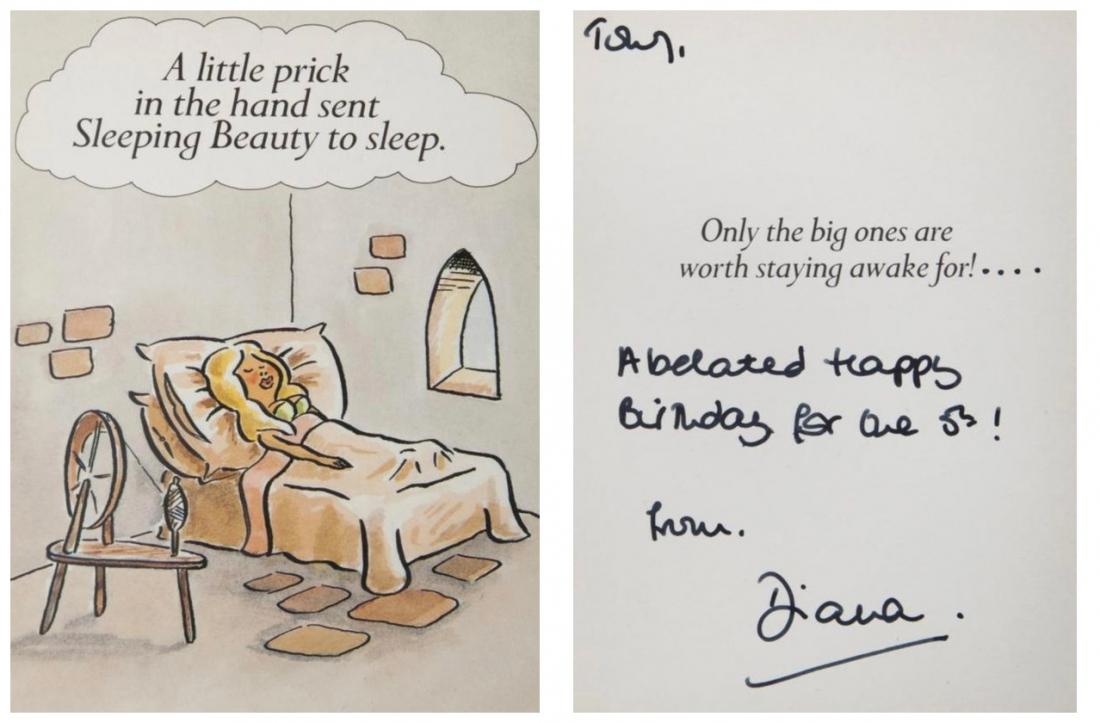 A little prick
in the hand sent
Sleeping Beauty to sleep.
Tony,
Only the big ones are
worth staying awake for!....
A belated Happy
Birthday for the 5th!
from.
Diana.